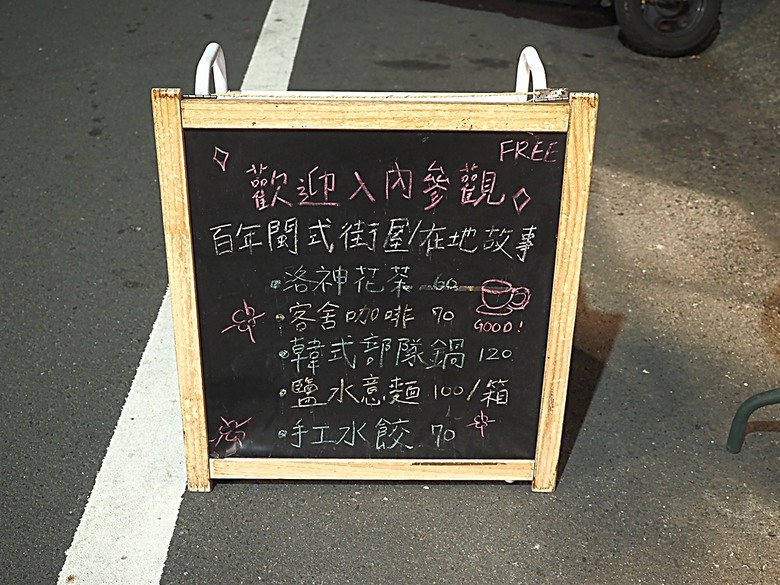 FREE
歡迎入內參觀
百年閩式街屋/在地故事
•洛神花茶 60
•客舍咖啡 70
GOOD!
•韓式部隊鍋 120
•鹽水意麵 100/箱
•手工水餃 70